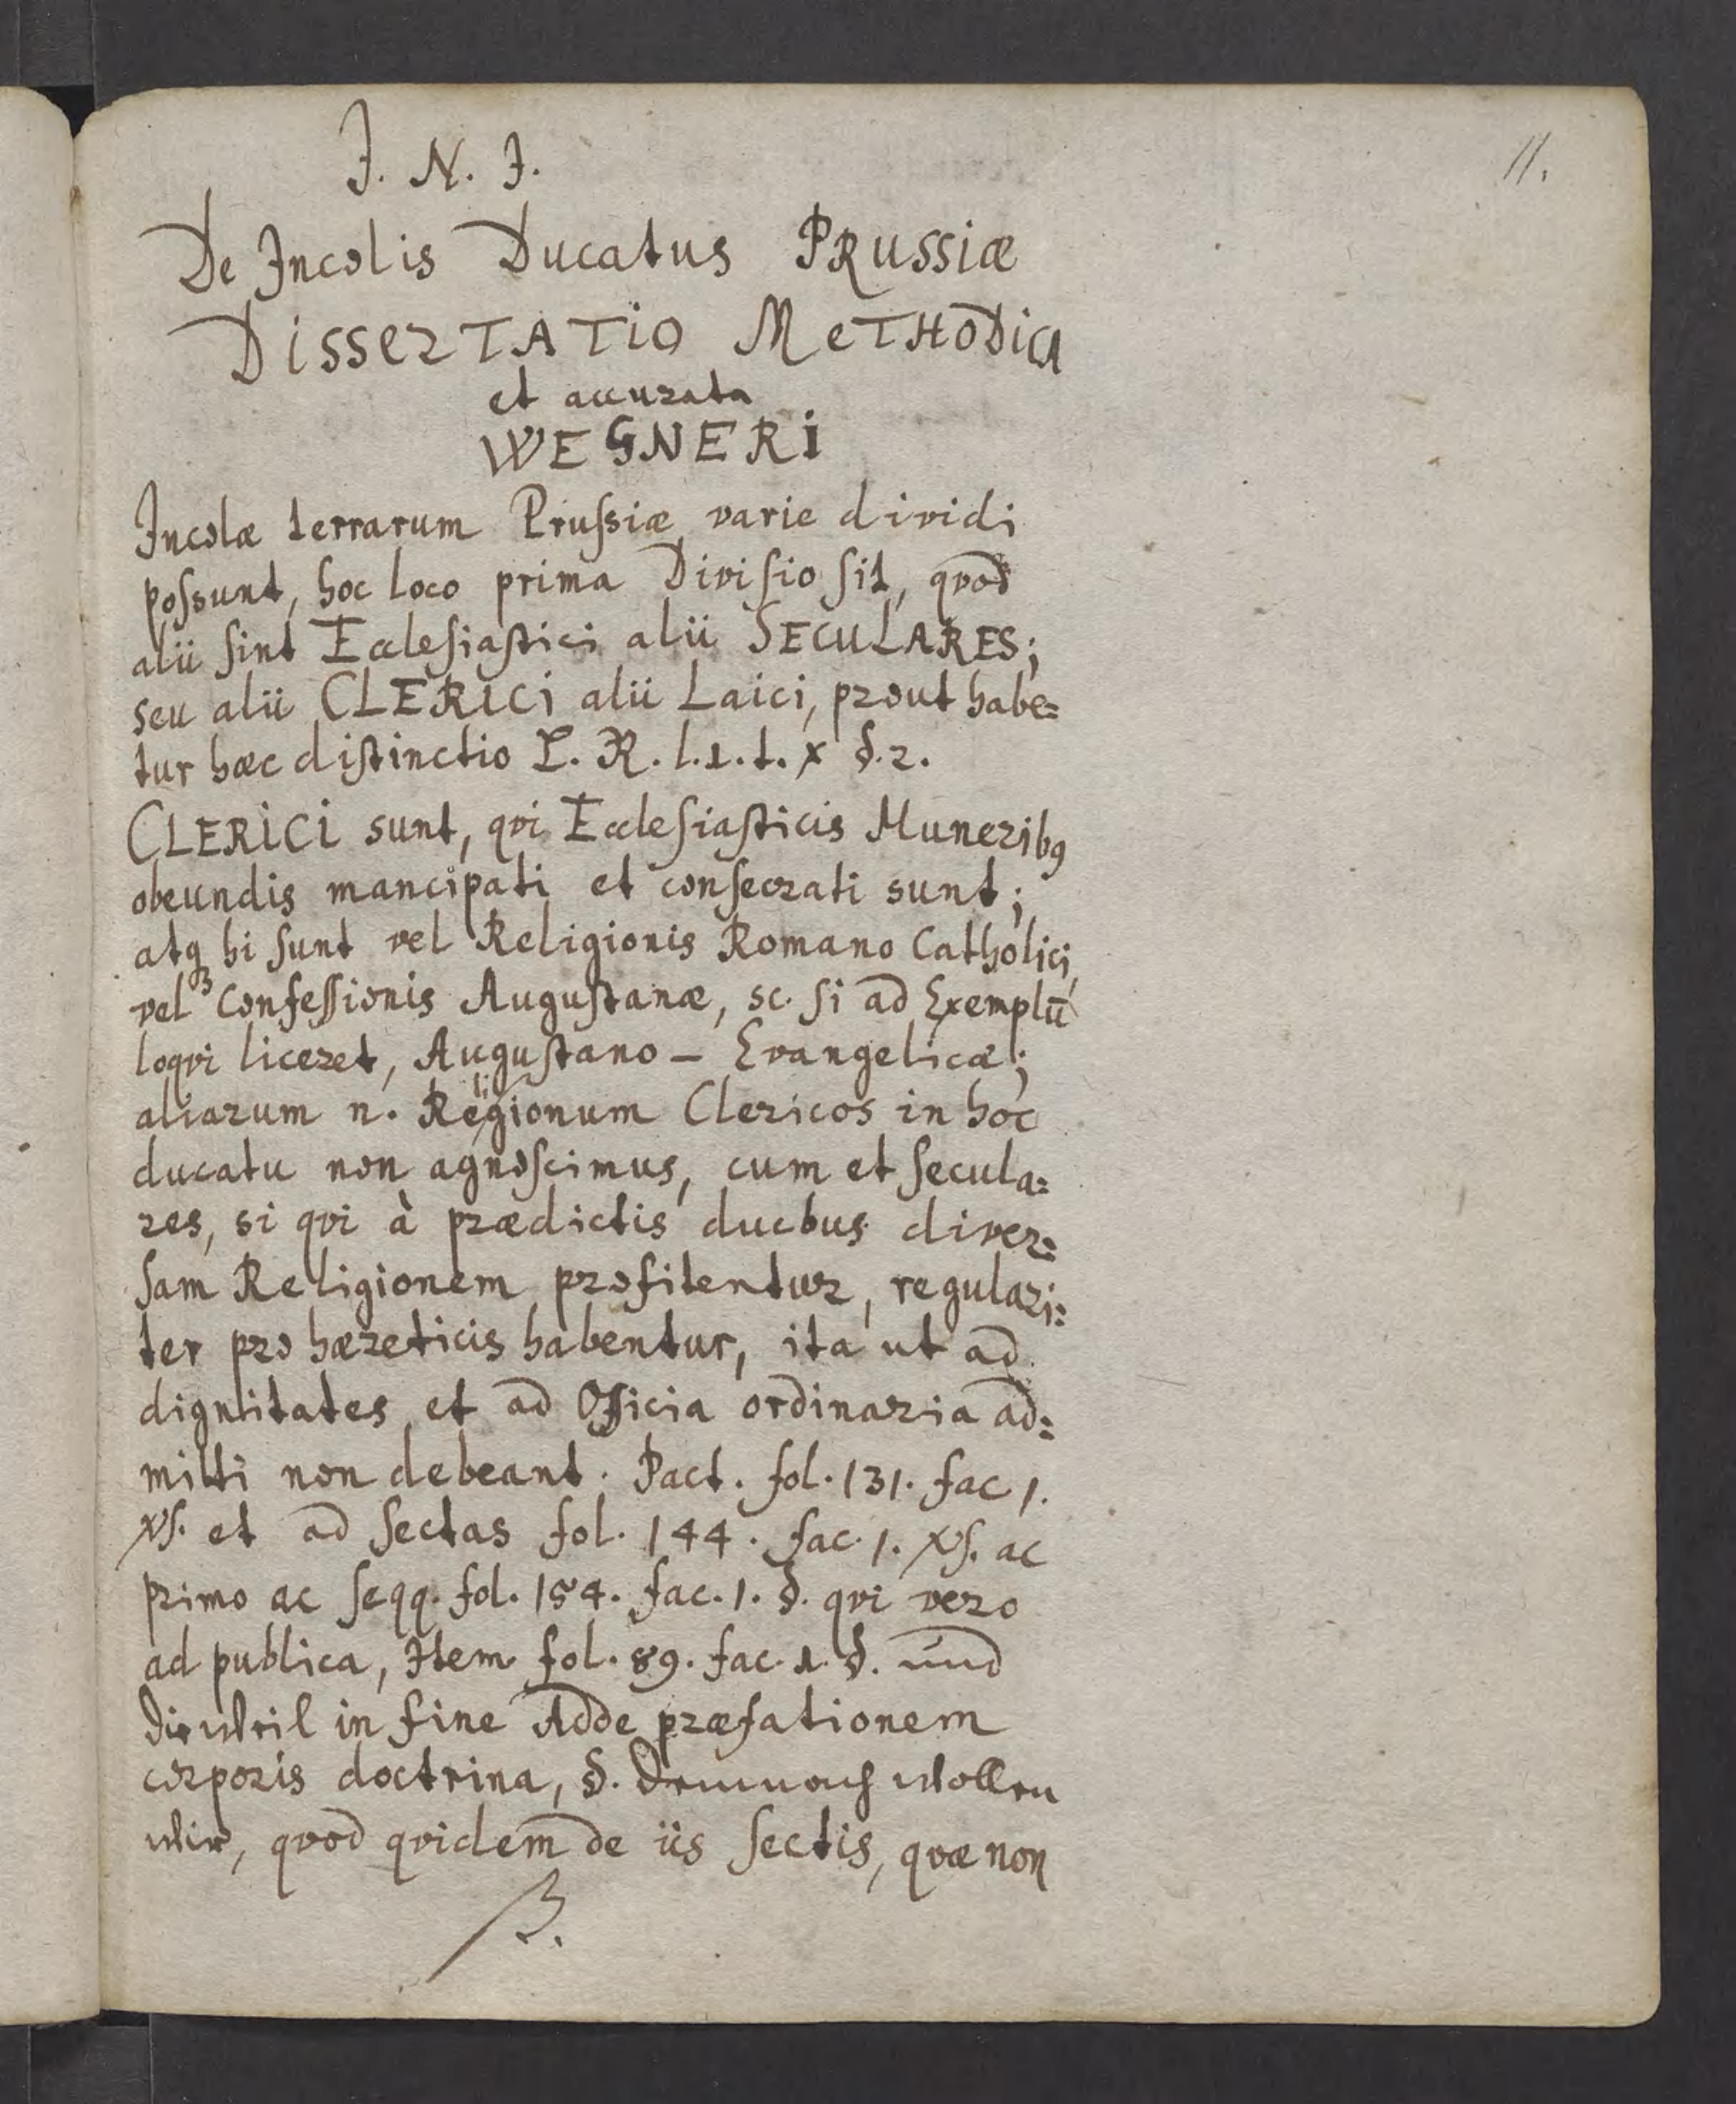 11.
J. N. J.
De Incolis Ducatus PRussiæ
DisserTATiO MeTHoDica
et accurata
WEGNERi
Incolæ terrarum Pruſsiæ varie dividi
poſsunt, hoc loco prima Diviſio ſit, qvod
alii ſint Eccleſiaſtici alii SECULARES;
seu alii CLERICi alii Laici, prout habe=
tur hæc diſtinctio L. R. l. 1. t. x §. 2.
CLERICI sunt, qvi Eccleſiaſticis Muneribꝰ
obeundis mancipati et conſecrati sunt;
atqꝫ hi ſunt vel Religionis Romano Catholici,
vel Confeſſionis Auguſtanæ, sc. ſi ad Exemplū
loqvi liceret, Auguſtano – Evangelicæ;
aliarum n. Religionum Clericos in hoc
ducatu non agnoſcimus, cum et ſecula=
res, si qvi à prædictis duobus diver=
ſam Religionem profitentur, regulari=
ter pro hæreticis habentur, ita ut ad
dignitates et ad Officia ordinaria ad=
mitti non debeant. Pact. fol. 131. fac 1.
et ad ſectas fol. 144. fac. 1. ac
primo ac ſeqq. fol. 154. fac. 1. §. qvi vero
ad publica, Item fol. 89. fac. 1. §. und
dieweil in fine Adde præfationem
corporis doctrina, §. Demnach wollen
wir, qvod qvidem de iis ſectis, qvæ non